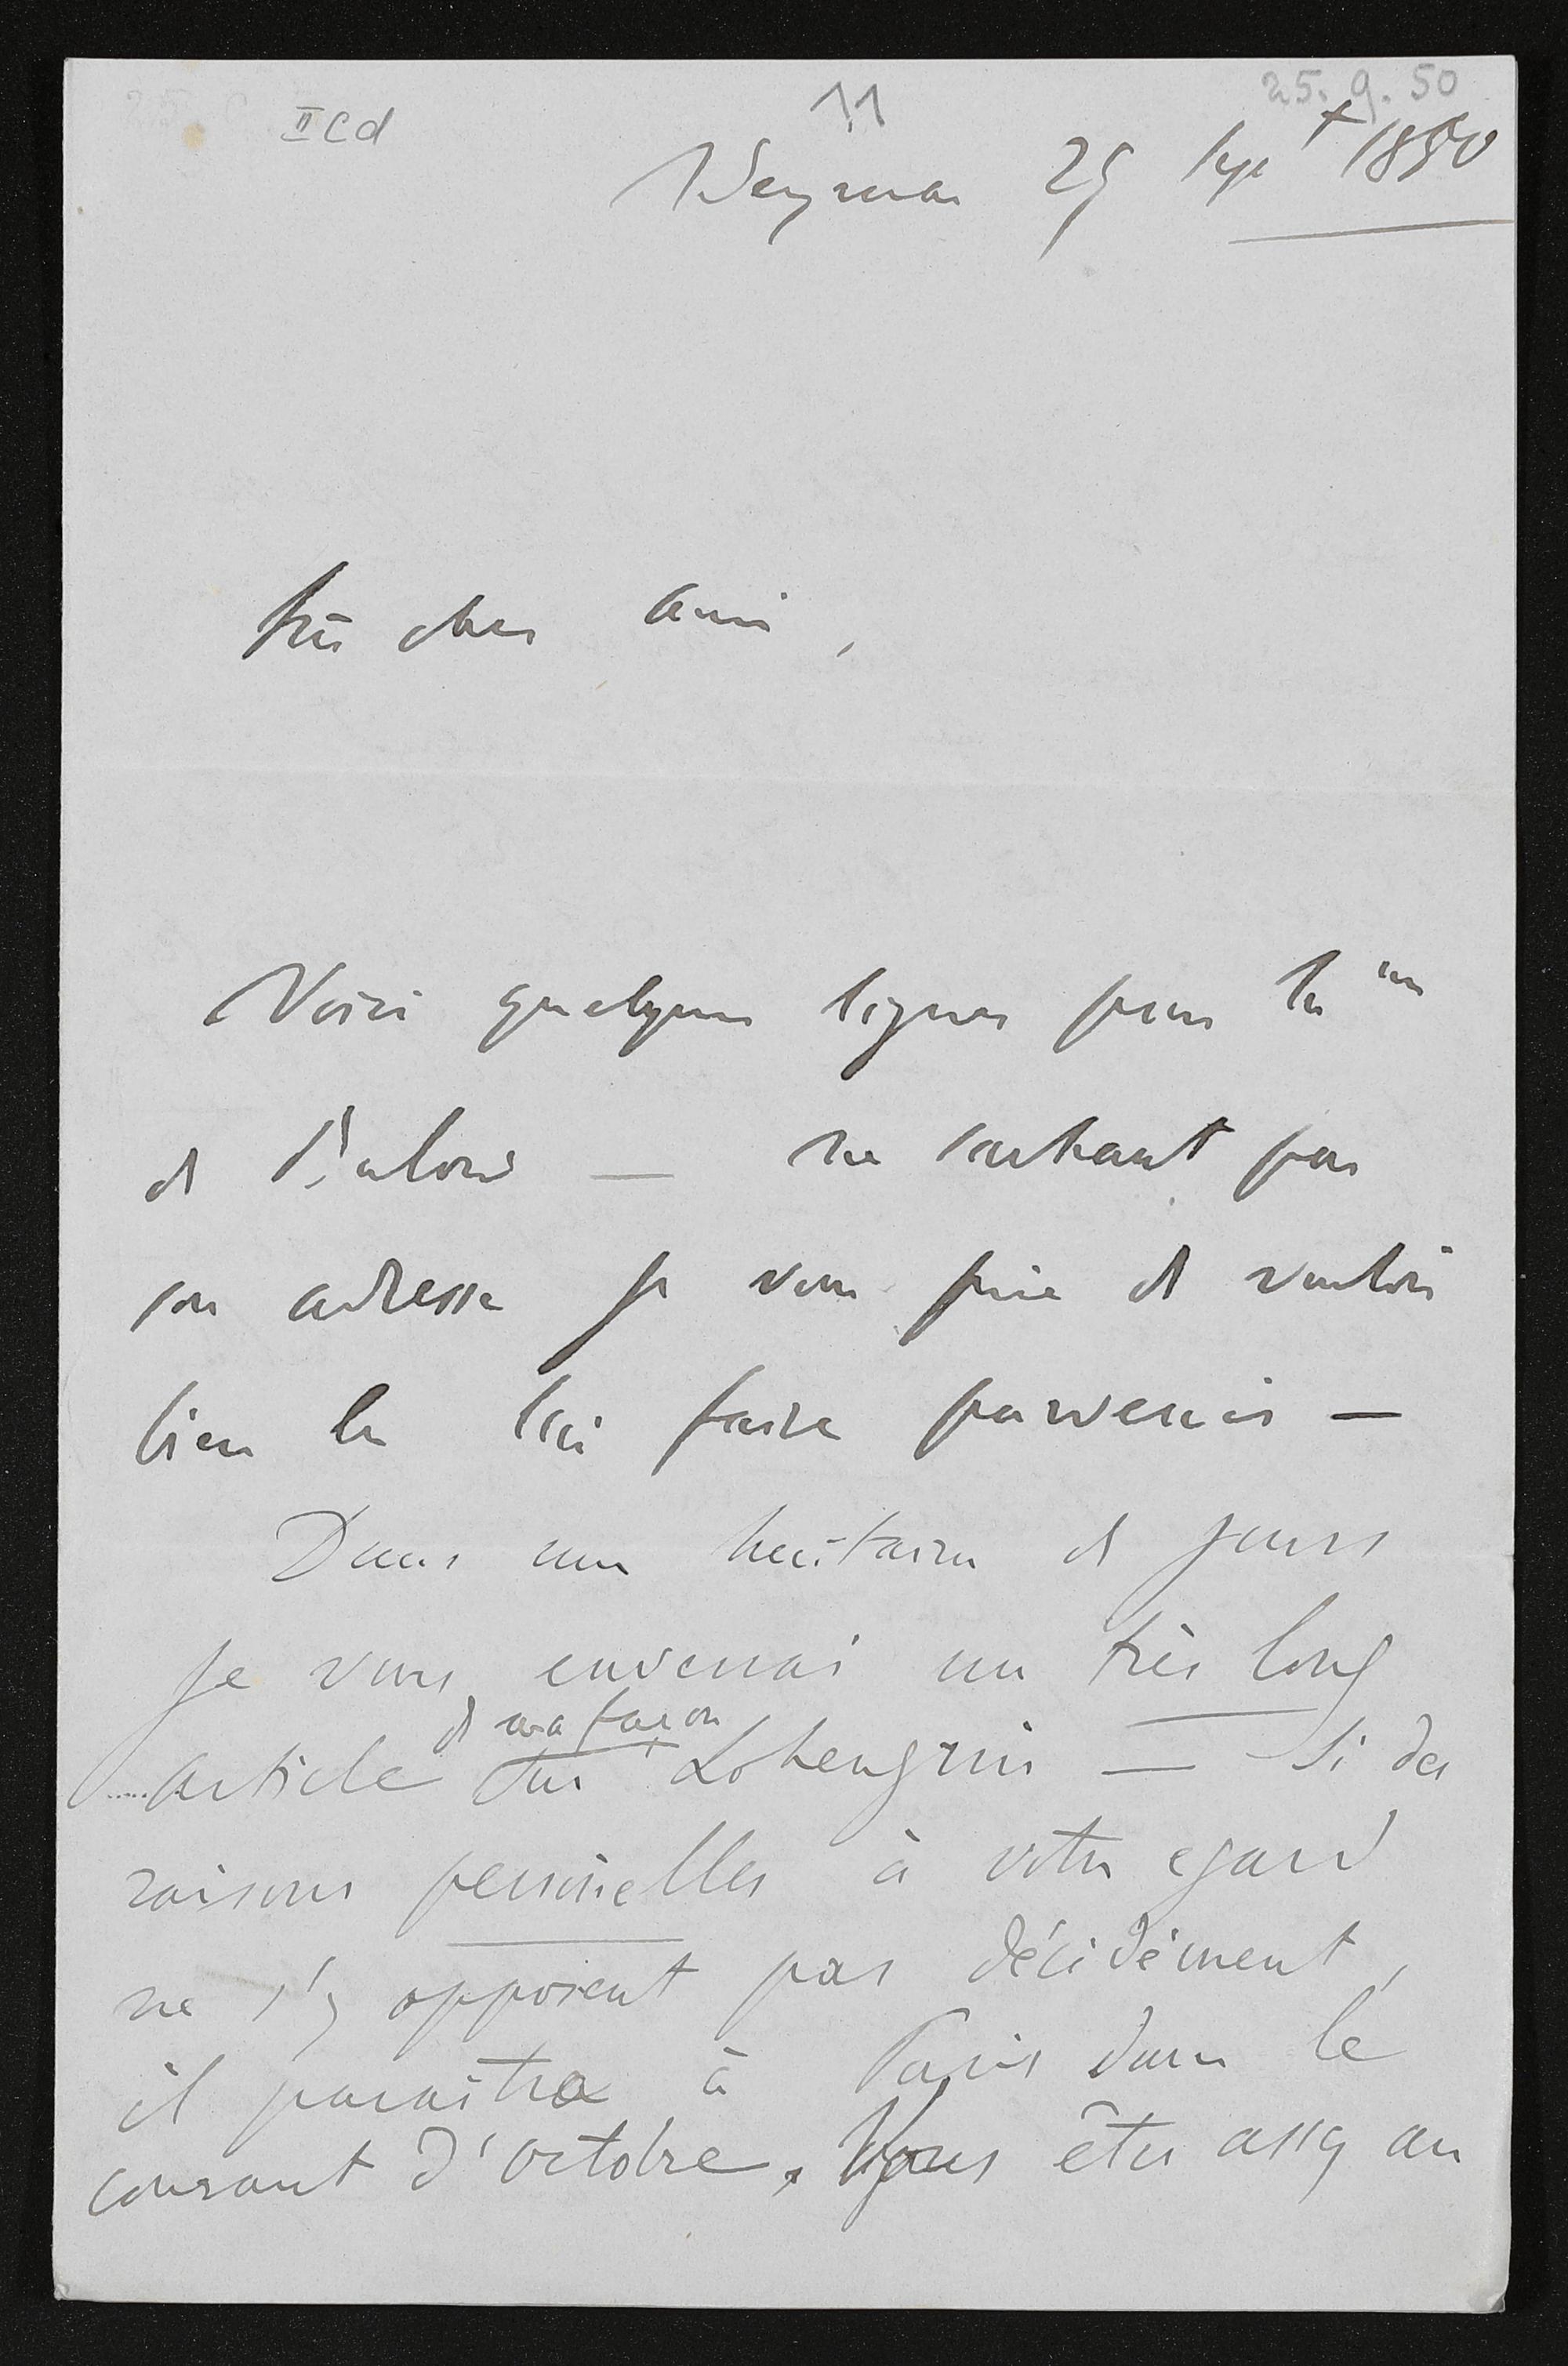 II Cd
11
25. 9. 50
Weymar 25 Sept 1850
Très cher ami,
Voici quelques lignes pour
de — ne sachant pas
son adresse je vous prie de vouloir
bien les lui faire parvenir —
Dans une huitaine de jours
je vous enverrai un très long
de ma façon
article sur Lohengrin — Si des
raisons personelles à votre egard
ne s'y opposent pas décidément,
il paraitra à Paris dans le
courant d'octobre. Vous êtes assez au